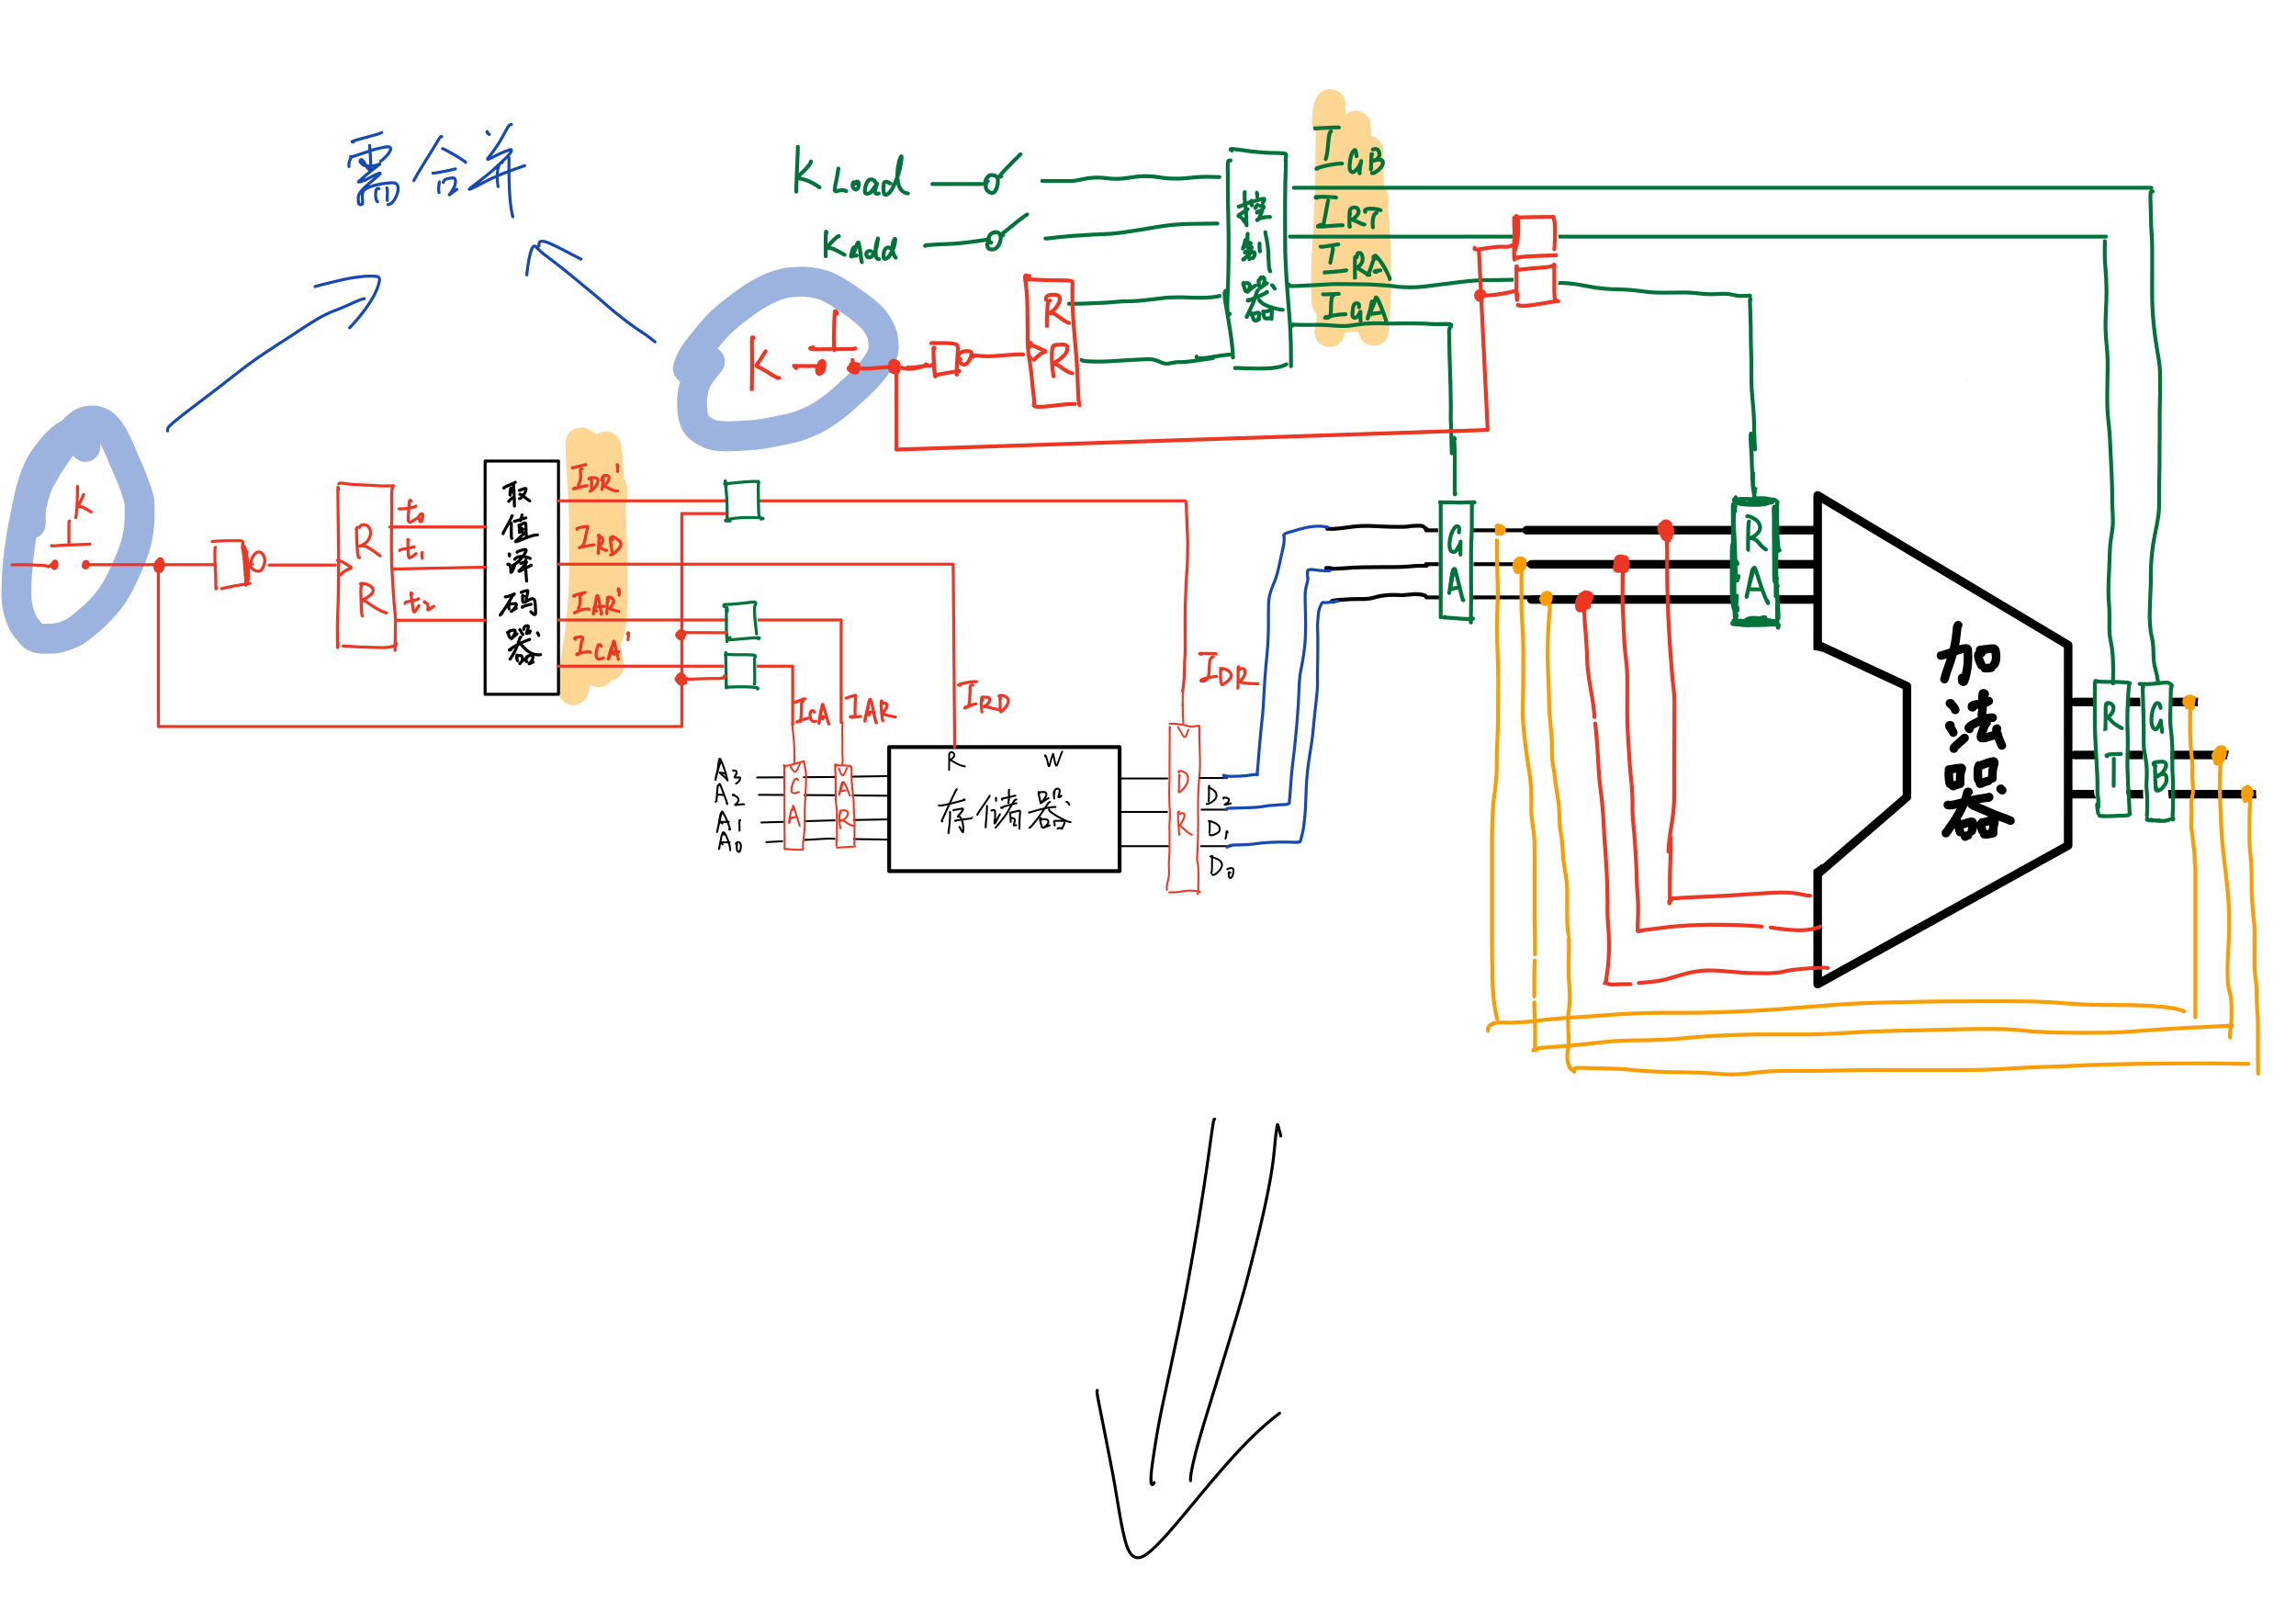 需合并
K Load
K Add
K
RR
控制器
I GB
I RT
I RA
I GA
K
RR
t0
t1
t2
取值译码器
I DR'
I RD
I AR'
I CA'
I CA
I AR
I RD
I DR
A3
A2
A1
A0
CA
AR
R
W
存储器
DR
D2
D1
D0
GA
RA
加法器
RT
GB